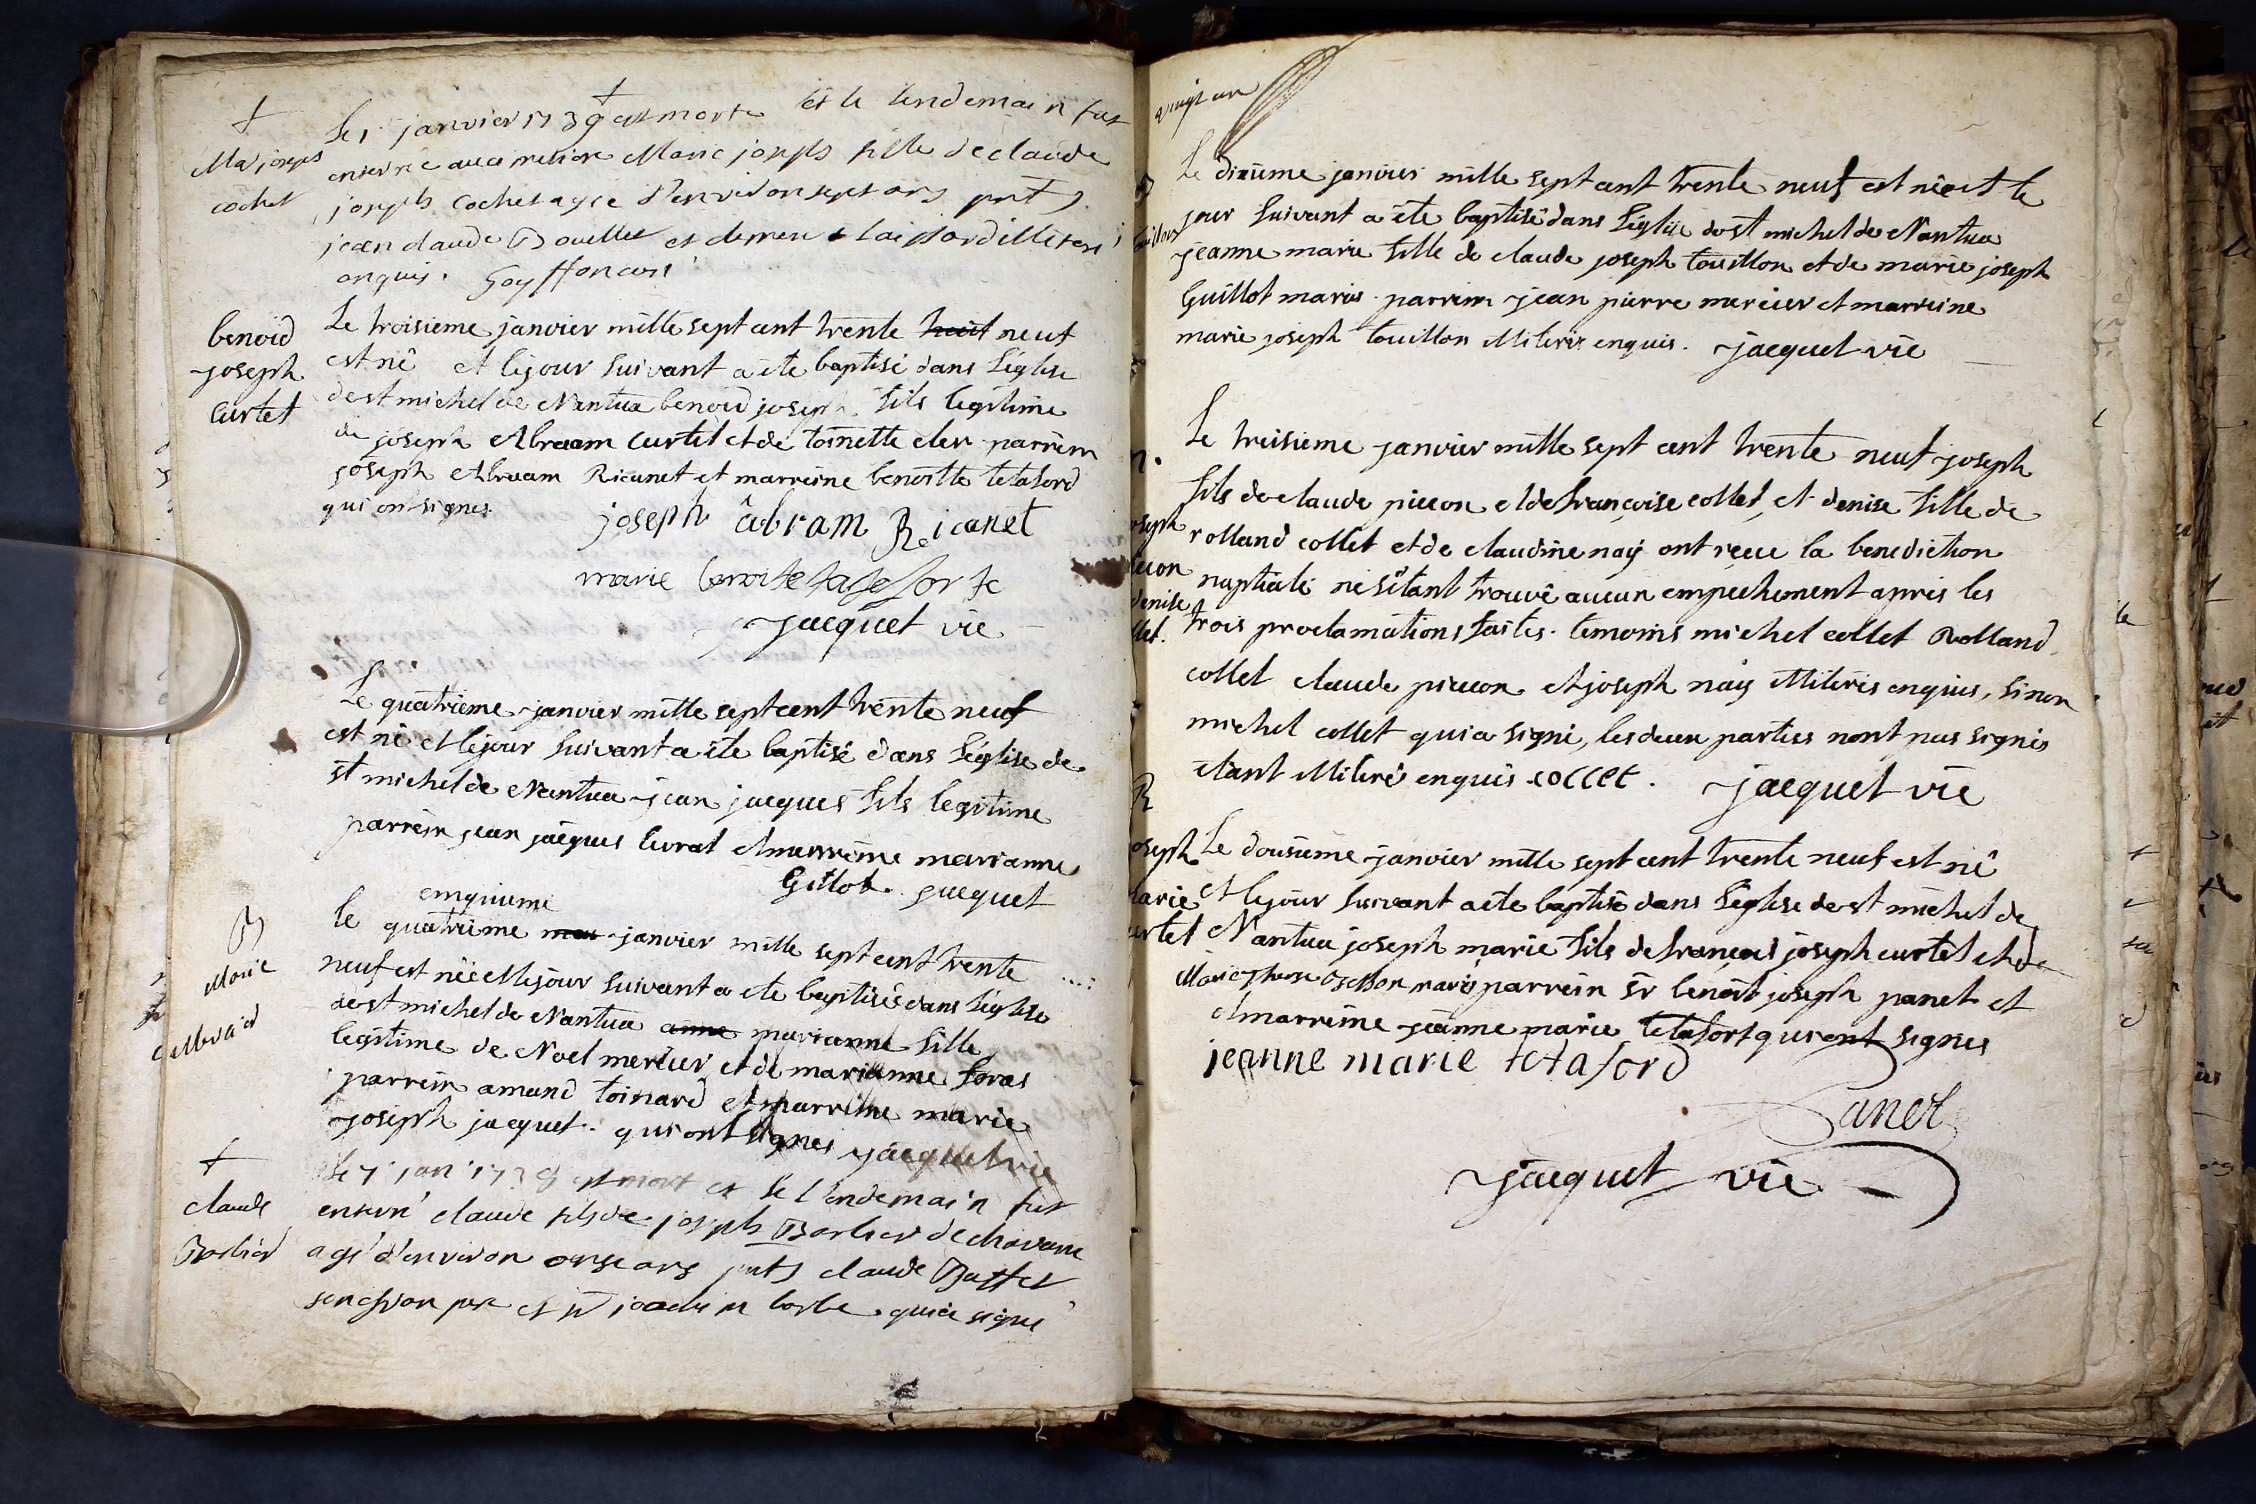 Le 1 janvier 1739 est morte et le lendemain fut
Ma joseph
cochet
enterrée Marie joseph fille de claude
joseph cochet agee d'environ sept ans pnts
jean claude Bouillet et
enquis. Goyffon curé
benoid
joseph
Curtet
Le troisieme janvier mille sept cent trente huit neuf
est né et le jour suivant a été baptisé dans l'église
de st michel de Nantua benoid joseph fils legitime
de joseph Abraam Curtet et de toinette parrein
joseph Abraam Ricanet et marreine benoitte tetaford
qui ont signes
joseph âbram Ricanet
marie benoite
jacquet vic
Le quatrieme janvier mille sept cent trente neuf
est né et le jour suivant a été baptisé dans l'église de
st michel de Nantua jean jacques fils legitime
parrein jean jacques livrat et marreine marianne
Gillot. jacquet
B
Marie
Mercier
cinquieme
le quatrieme janvier mille sept cent trente
neuf est née et le jour suivant a été baptisée dans l'église
de st michel de Nantua anne marianne fille
legitime de Noel mercier et de marianne foras
parrein amand toinard et marreine marie
joseph jacquet. qui ont signes jacquet vic
Le 7 jan 1739 est mort et le lendemain fut
claude
Barbier
enterré claude fils de joseph Barlier de chavane
agé d'environ onse ans pnts claude Buffet
son pere et joachim borbe qui a signé
vingt un
Le dixieme janvier mille sept cent trente neuf est née et le
jour suivant a été baptisé dans l'église de st michel de Nantua
jeanne marie fille de claude joseph touillon et de marie joseph
Guillot mariés parrein jean pierre mercier et marreine
marie joseph touillon illiteres enquis. jacquet vic
Le treisieme janvier mille sept cent trente neuf joseph
fils de claude piccon et de françoise collet, et denise fille de
rolland collet et de claudine naÿ ont reçue la benediction
nuptiale ne s'étant trouvé aucun empechement apres les
trois proclamations faites. temoins michel collet Rolland
collet claude piccon et joseph naÿ illiteres enquis, sinon
michel collet qui a signé, les deux parties n'ont pas signés
étant illiteré enquis. collet. jacquet vic
Le dousieme janvier mille sept cent trente neuf est né
et le jour suivant a été baptisé dans l'église de st michel de
Nantua joseph marie fils de francois joseph curtet et de
mariés parrein sr benoit joseph panet et
et marreine jeanne marie tetafort qui ont signes
jeanne marie tetaford
Panet
jacquet vic